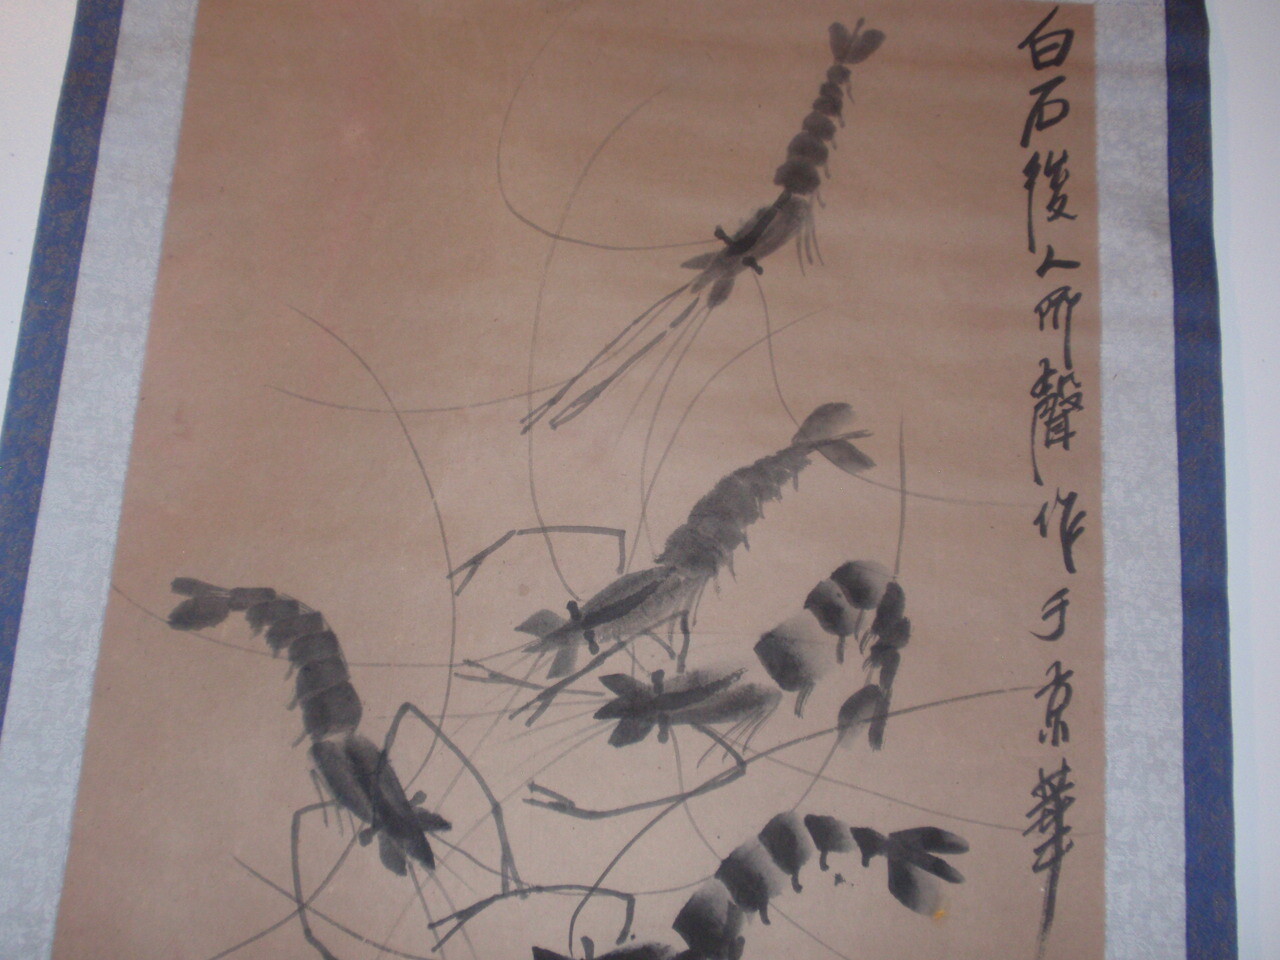 白石後人所聲作于京華